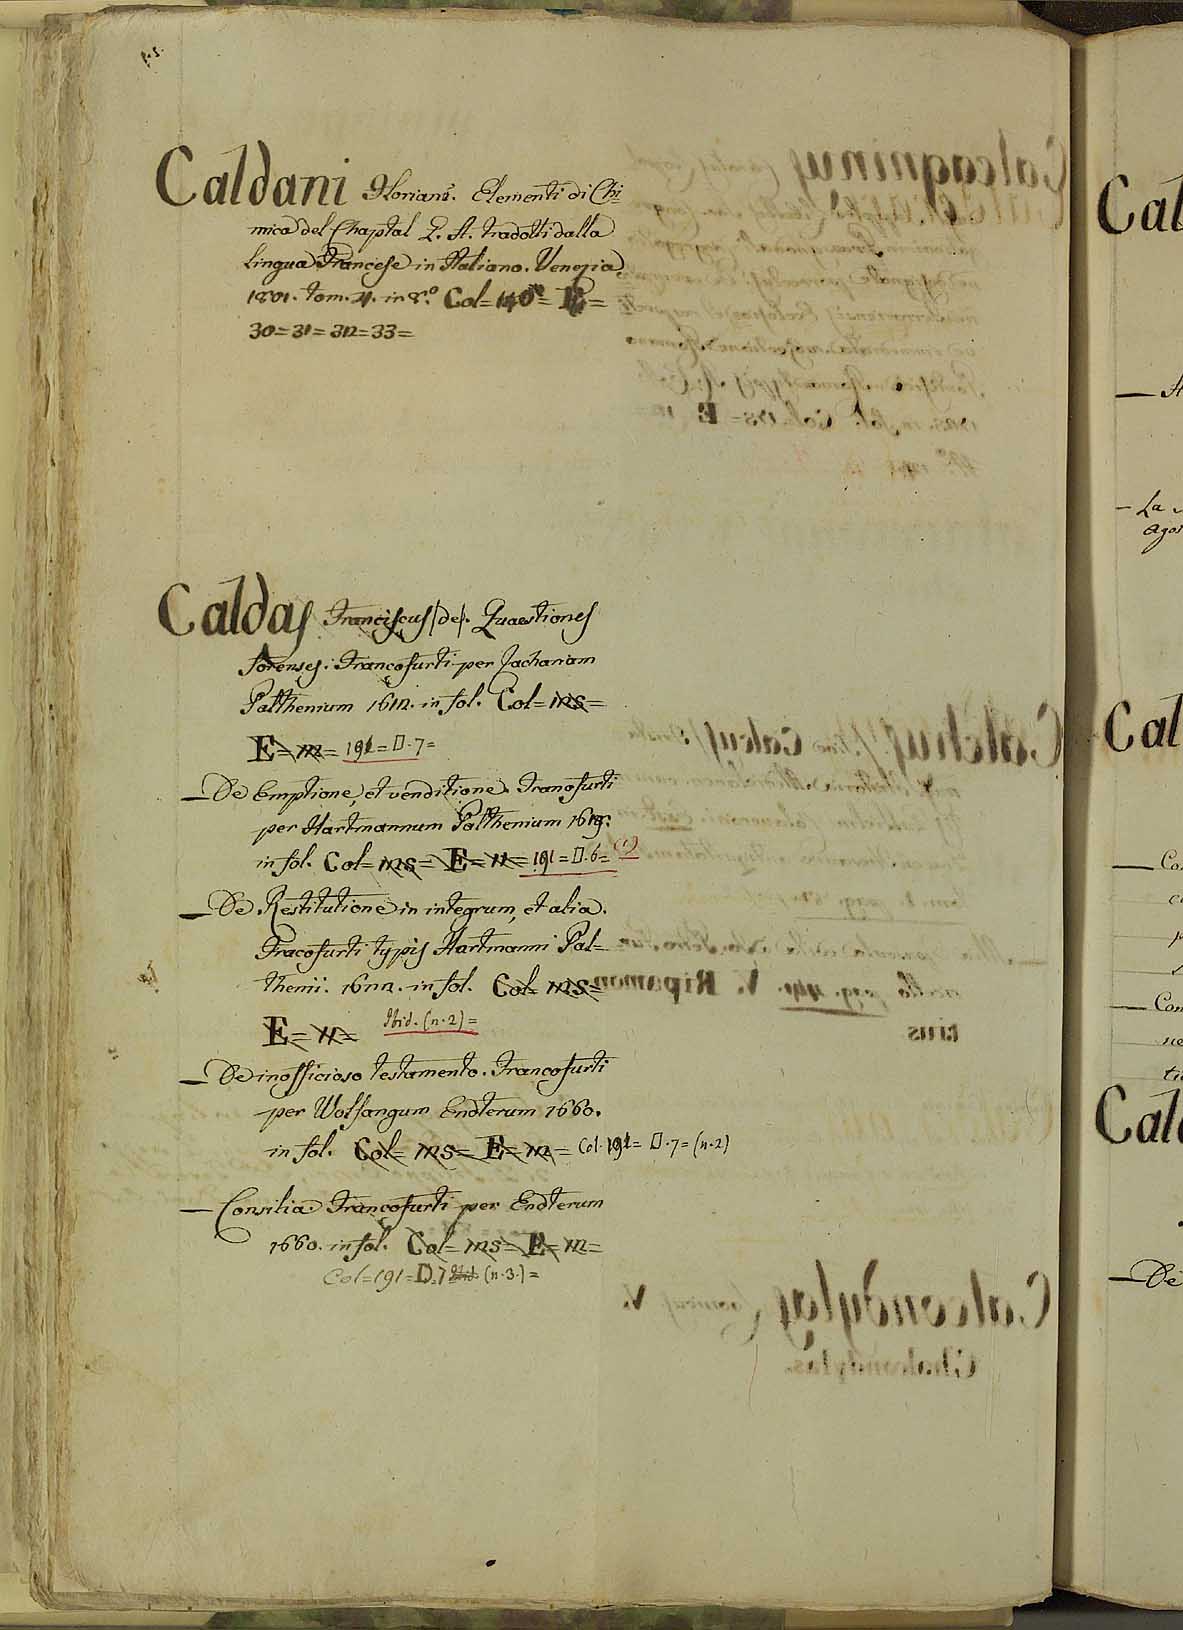 Caldani Floriano. Elementi di Chi
mica del Chaptal I. A. tradotti dalla
lingua Francese in Italiano. Venezia
1801. tom. 4. in 8.º Col= 140= E=
30=31=32=33=
Caldas Franciscus (de). Quaestiones
forenses. Francofurti per Zachariam
Palthenium 1612. in fol. Col= 125=
E= 12= 191= D.7=
— De Emptione, et venditione. Francofurti
per Hartmannum Palthenium 1619.
in fol. Col= 125= E= 11= 191= D.6= (1)
— De Restitutione in integrum, et alia.
Fracofurti typis Hartmanni Pal=
themii. 1622. in fol. Col= 125=
E= 11= Ibid. (n.2)=
— De inofficioso testamento. Francofurti
per Wolfangum Endterum 1660.
in fol. Col= 125= E= 12= Col. 191= D.7= (n.2)
— Consilia. Francofurti per Endterum
1660. in fol. Col= 125= E= 12=
Col=191=D.7 Ibid. (n.3.)=
Cal
Cal
— Co
— Con
Cal
— De
— La